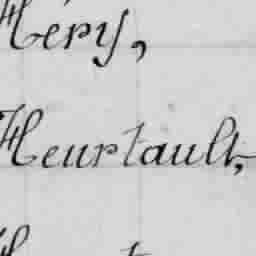 Héry,
Heurtault,